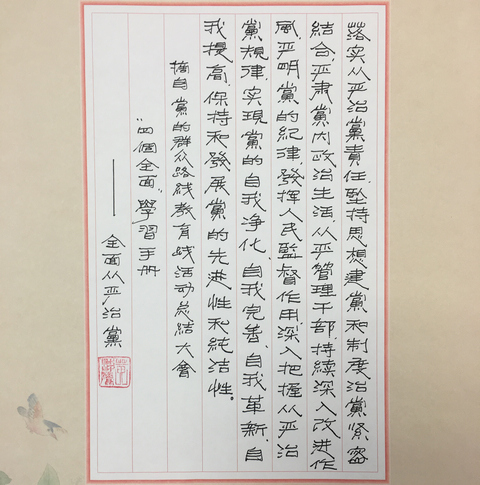 落实从严治黨责任,坚持思想建黨和制度治黨紧密
结合,严肃黨内政治生活,从严管理干部,持續深入改进作
风,严明黨的纪律,發挥人民監督作用,深入把握从严治
黨规律,实現黨的自我净化、自我完善、自我革新、自
我提高,保持和發展黨的先进性和純洁性。
摘自黨的群众路线教育践活动总结大會
“四個全面”學習手册
——全面从严治黨